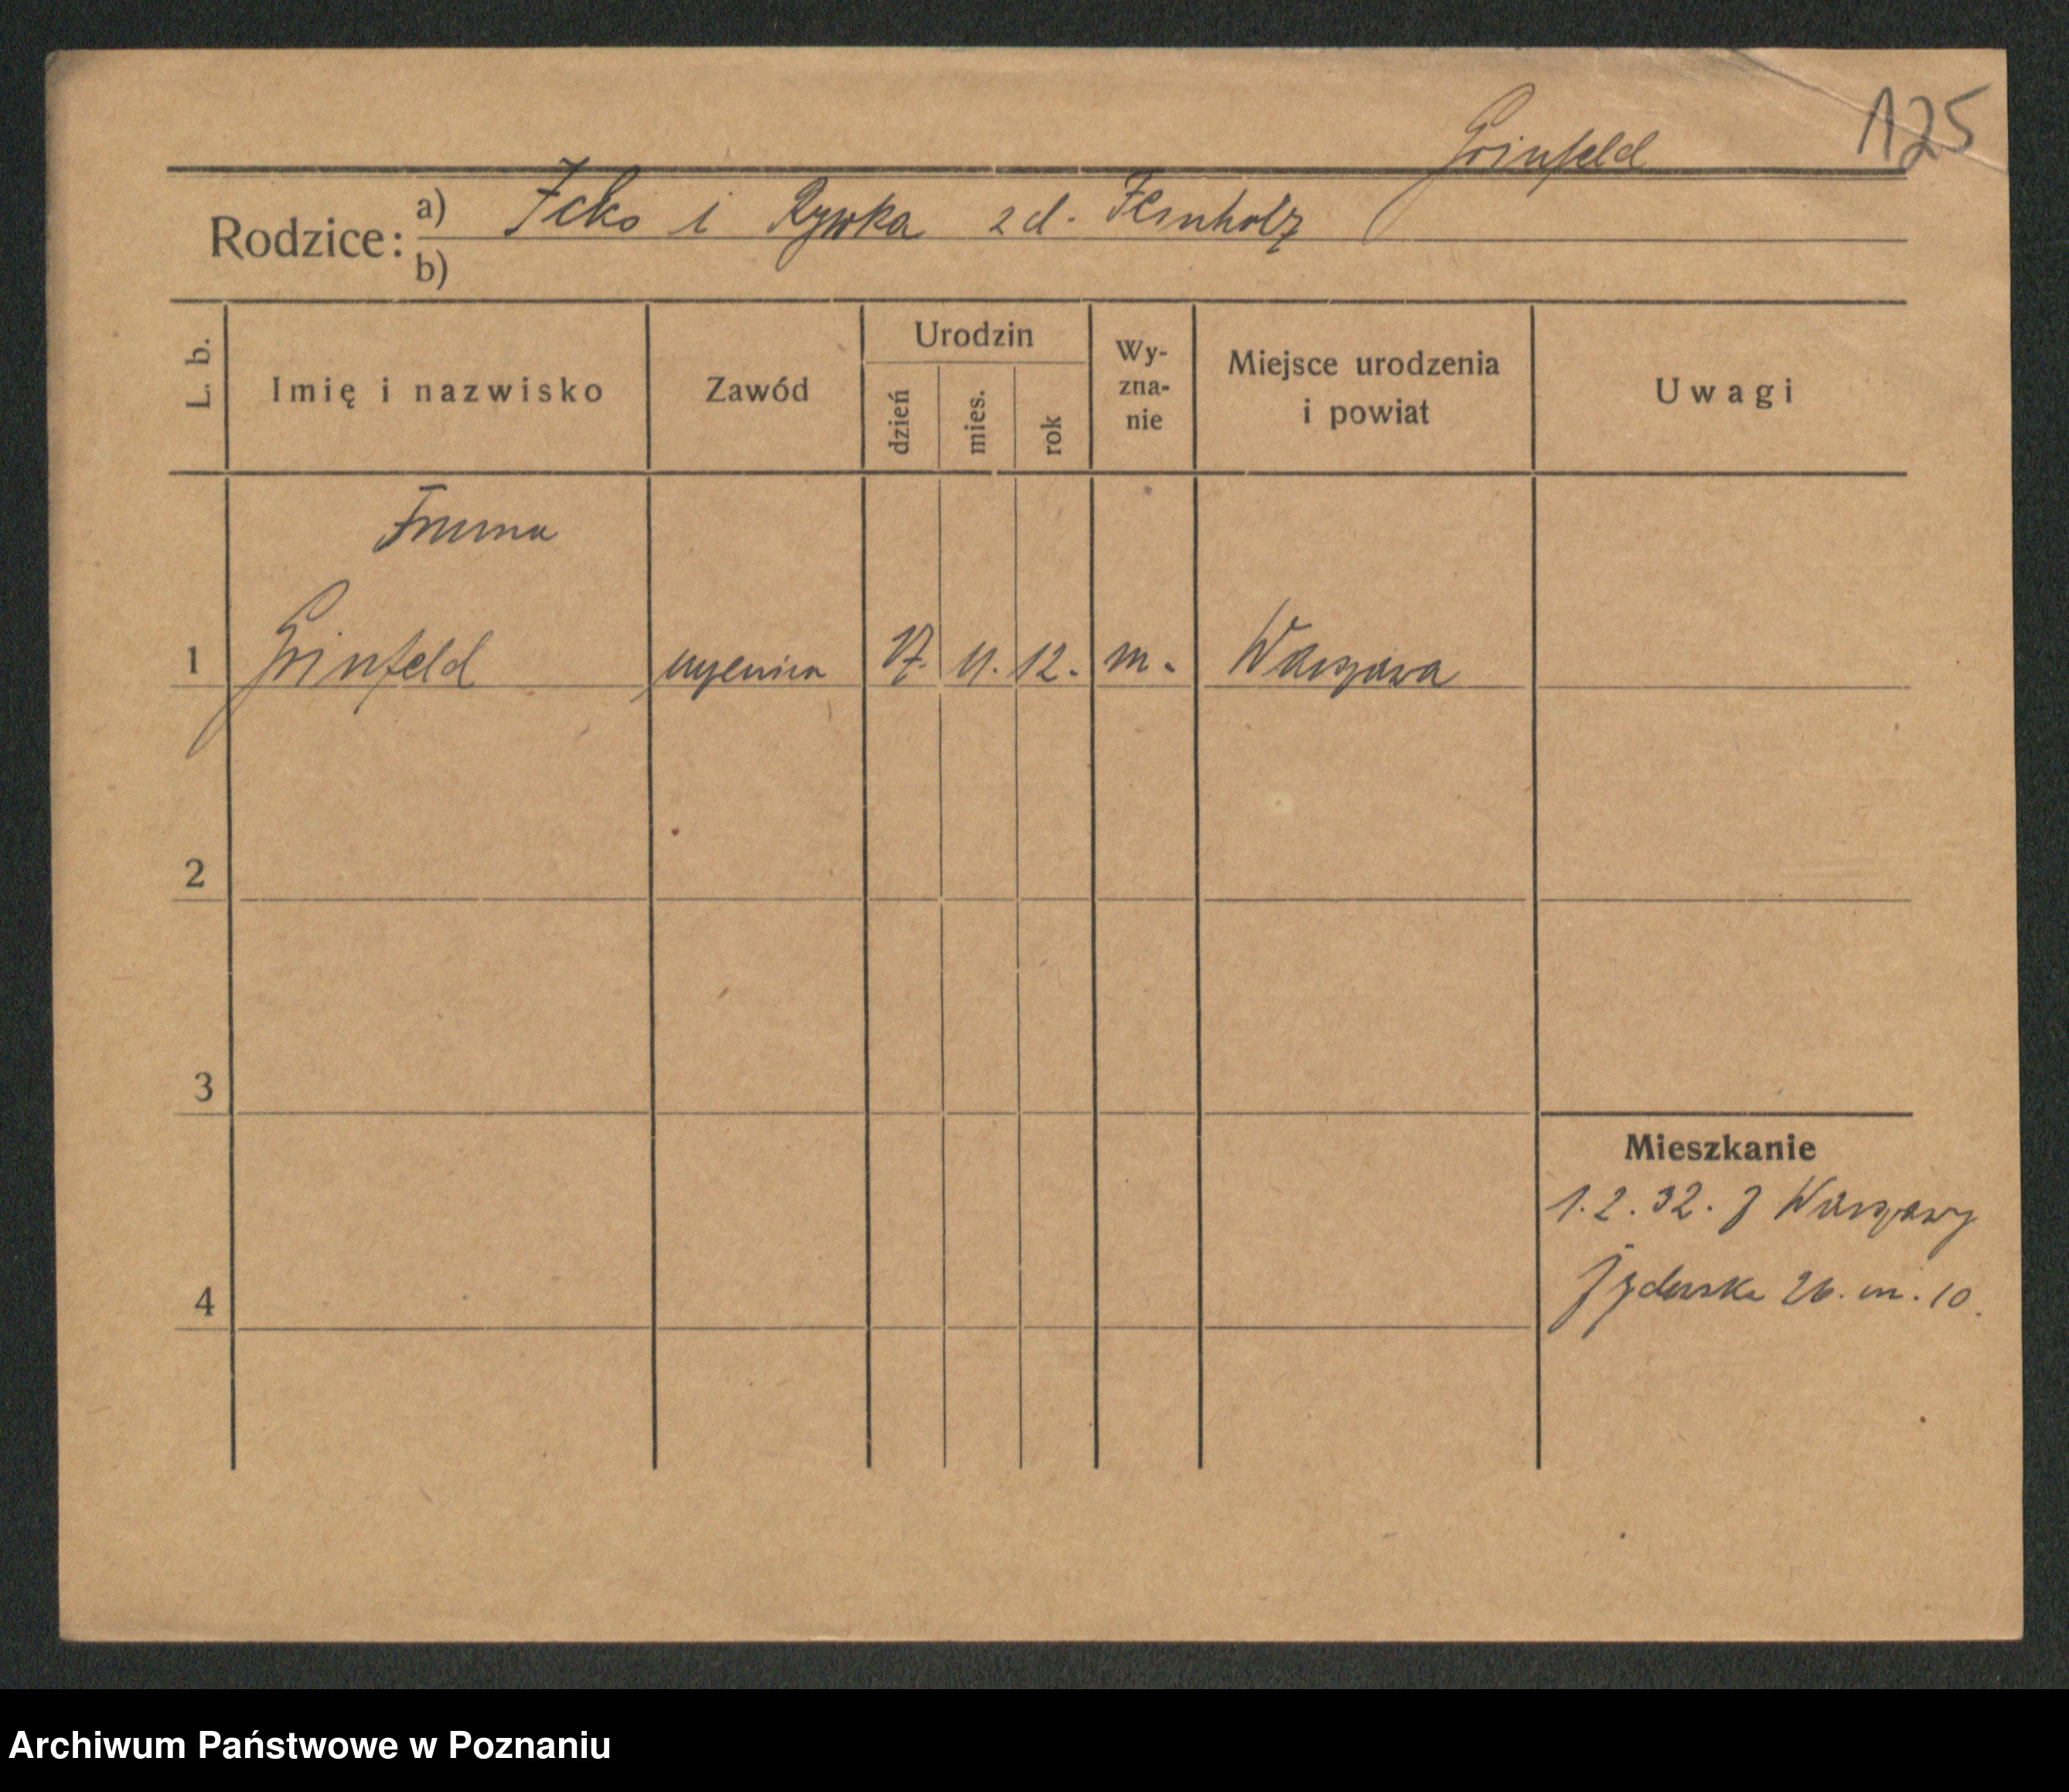 125
Grinfeld
Rodzice: a) Icko i Rywka z d. Fernholz
b)
L. b. Imię i nazwisko Zawód Urodzin dzień mies. rok Wy-zna-nie Miejsce urodzenia i powiat Uwagi
Fruma
1 Grinfeld uczenica 17. 11. 12. m. Warszawa
2
3
Mieszkanie
1.2.32. z Warszawy
4 26. m. 10.
Archiwum Państwowe w Poznaniu